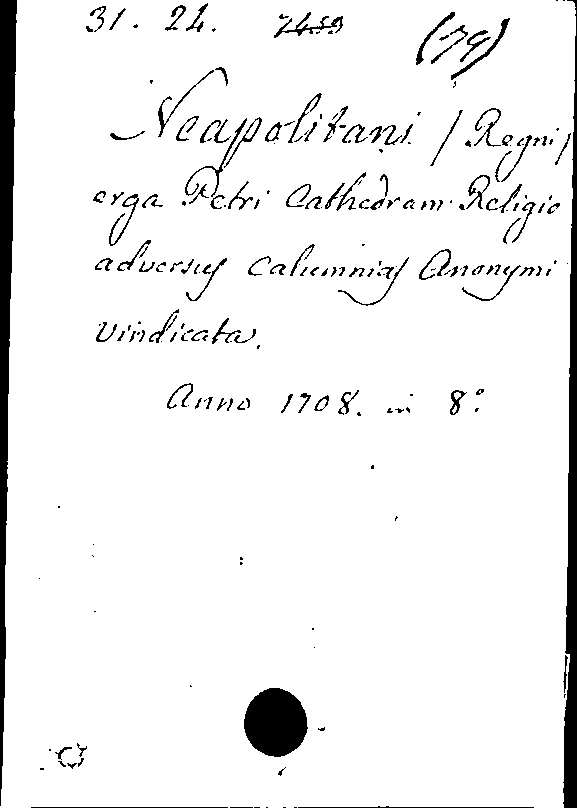 31. 24. 7459 (79)
Neapolitani / Regni /
erga Petri Cathedram Religio
adversus Calumnias Anonymi
Vindicata.
Anno 1708. in 8º.